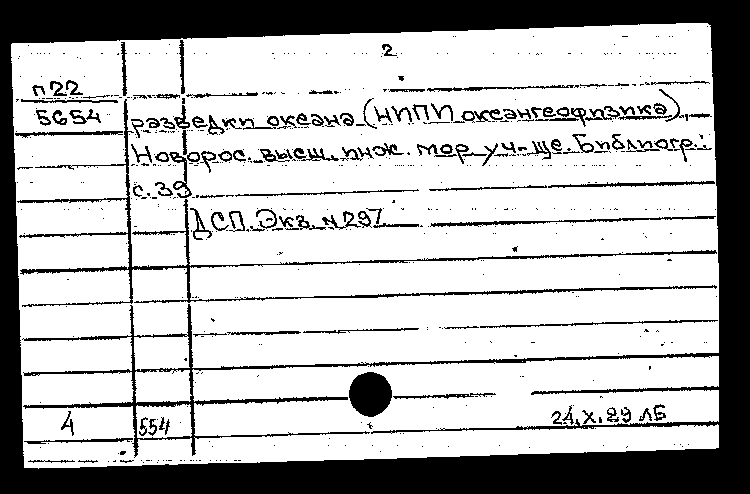 2
п22
5654
разведки океана (НИПИ океангеофизика),
Новорос. высш. инж. мор уч-ще. Библиогр.:
с. 39
ДСП. Экз. N 297
4 554 24.X.89 ЛБ